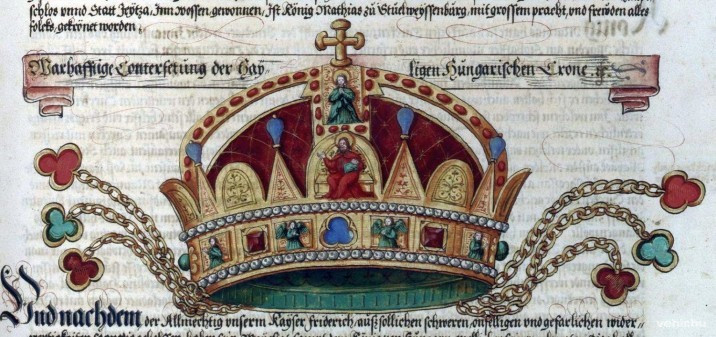 schlos vnnd Statt Jeytza, Inn wossen, gewonnen, Ist König Mathias zů Stůelweyssenburg, mit grossem pracht, vnd freüden alles
folcks, gekrönet worden.
Warhafftige Conterfetung der Hay- ligen Hüngarischen Crone.
Vnd nachdem der Allmechtig vnserm Kayser, friderich, auß sollichen schweren, onfelligen vnd gefarlichen wider-